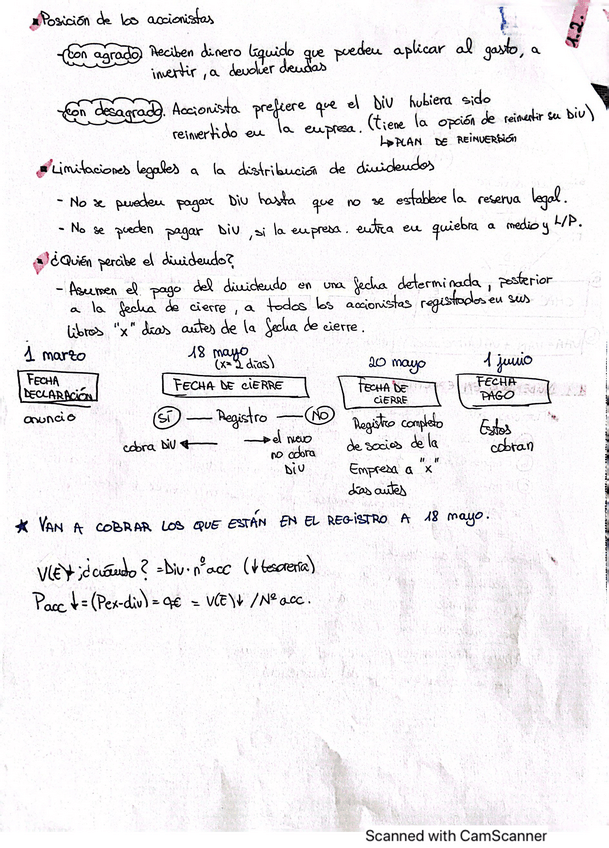 1.2.
Posición de los accionistas
- con agrado Reciben dinero líquido que pueden aplicar al gasto, a
invertir, a devolver deudas
- con desagrado. Accionista prefiere que el Div hubiera sido
reinvertido en la empresa. (tiene la opción de reinvertir su Div)
↳ PLAN DE REINVERSIÓN
Limitaciones legales a la distribución de dividendos
- No se pueden pagar Div hasta que no se establece la reserva legal.
- No se pueden pagar Div, si la empresa. entra en quiebra a medio y L/P.
¿Quién percibe el dividendo?
- Asumen el pago del dividendo en una fecha determinada, posterior
a la fecha de cierre, a todos los accionistas registrados en sus
libros "x" días antes de la fecha de cierre.
1 marzo
FECHA
DECLARACIÓN
anuncio
18 mayo
(x= 2 días)
FECHA DE CIERRE
SÍ — Registro — NO
cobra Div ←
→ el nuevo
no cobra
Div
20 mayo
FECHA DE
CIERRE
Registro completo
de socios de la
Empresa a "x"
días antes
1 junio
FECHA
PAGO
Estos
cobran
★ VAN A COBRAR LOS QUE ESTÁN EN EL REGISTRO A 18 mayo.
V(E)↓ ¿cuándo? = Div · nº acc (↓ tesorería)
Pacc ↓ = (Pex-div) = q€ = V(E)↓ / Nº acc.
Scanned with CamScanner